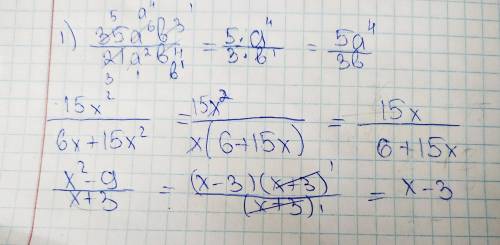 1) 35a⁶b³ / 21a²b⁴ = 5·a⁴ / 3·b¹ = 5a⁴ / 3b
15x² / 6x+15x² = 15x² / x(6+15x) = 15x / 6+15x
x²-9 / x+3 = (x-3)(x+3) / (x+3) = x-3